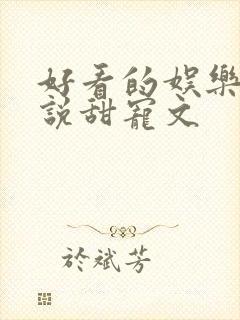 好看的娛樂
說甜寵文
於斌芳